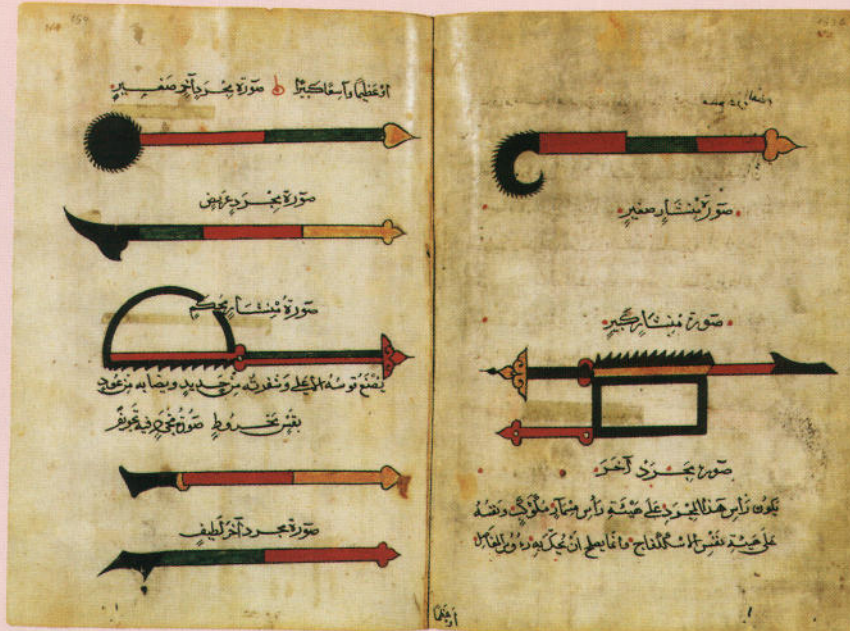 صورة منشار صغير
صورة منشار كبير
صورة مجرد آخر
يكون رأس هذا المجرد على هيئة رأس مسمار مكوكب ونقشه
على هيئة نقش الاسكلفاج وانما يصلح أن تحك به رءوس المفاصل
أو عظيما
150
أو عظيما واسعا كبيرا صورة مجرد آخر صغير
صورة مجرد عريض
صورة منشار محكم
يصنع قوسه الاعلى وشفرته من حديد ونصابه من عود
بقس مخروط صورة مجرد فيه تجويف
صورة مجرد آخر لطيف